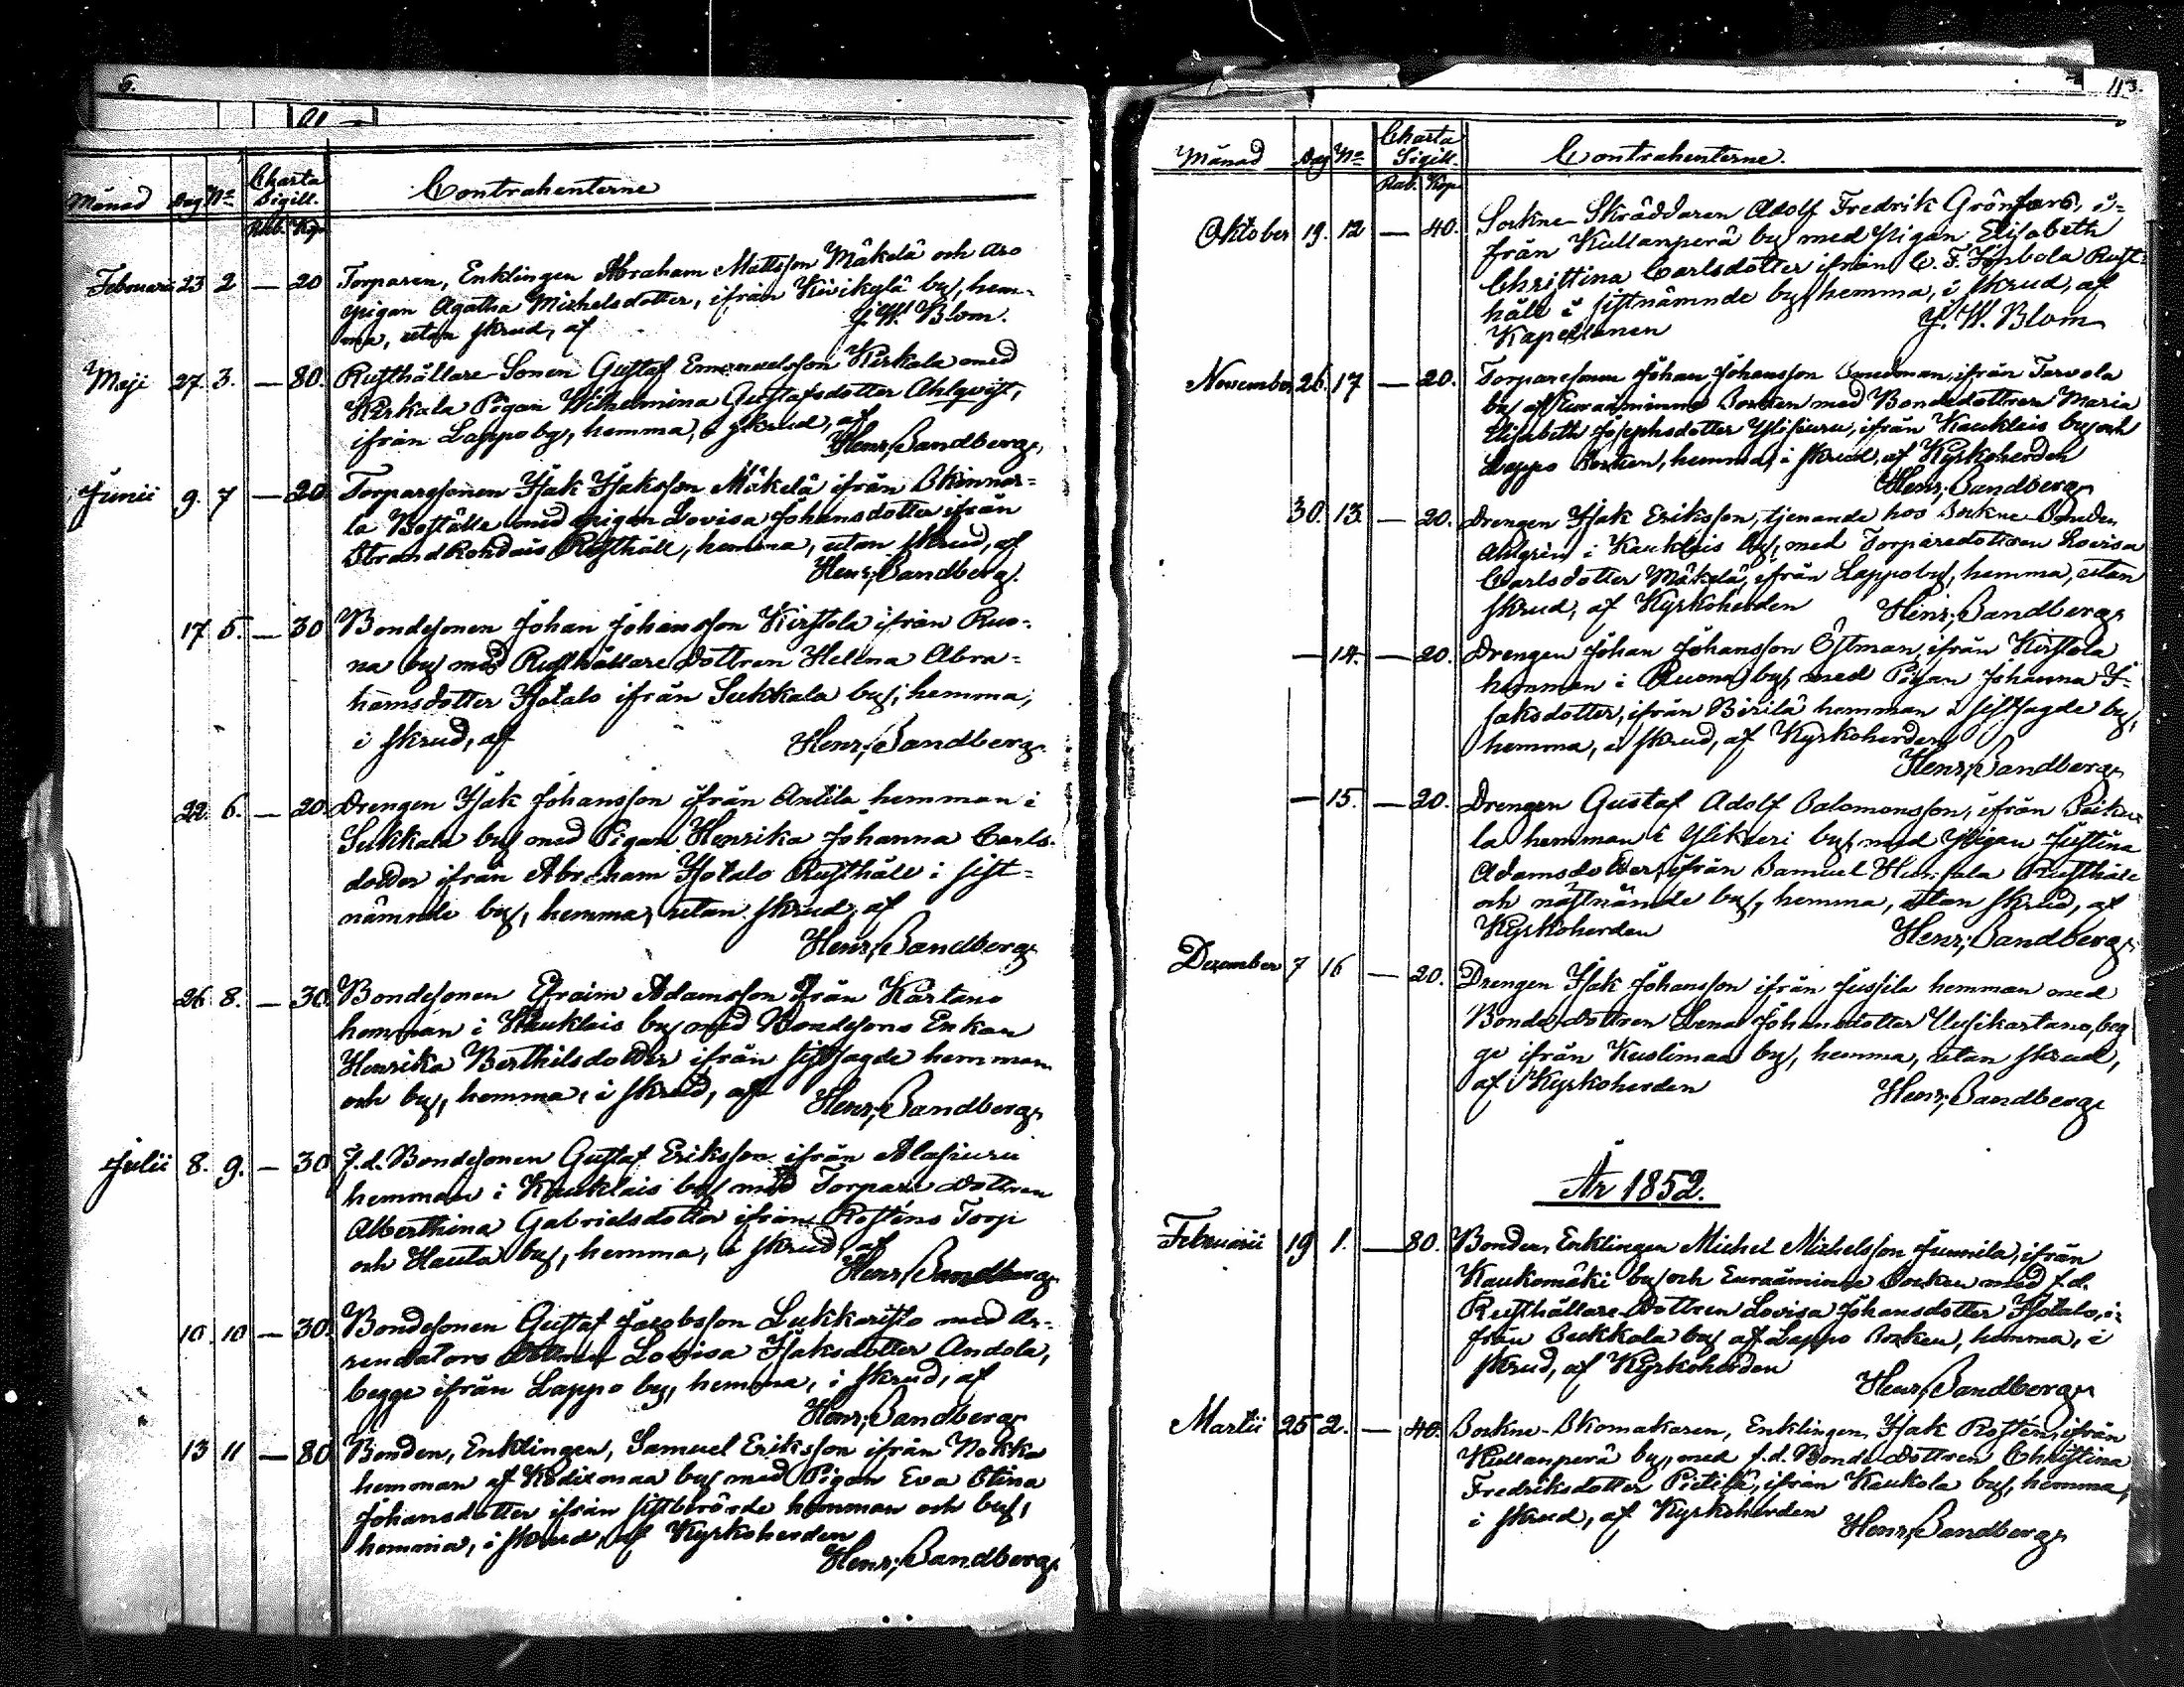 Månad Dag No Charta Sigill. Contrahenterne
Rub. Kop.
Februarii 23 2 — 20 Torparen, Enklingen Abraham Mattsson Mäkelä och
pigan Agatha Michelsdotter, ifrån Kivikylä by, hem-
ma, utan skrud, af J. W. Blom.
Maji 27. 3. — 80. Rusthållare-Sonen Gustaf Emanuelsson Kirkala med
Kirkala Pigan Wilhelmina Gustafsdotter Ahlqvist,
ifrån Lappo by, hemma, i skrud, af
Henr. Sandberg.
Junii 9. 7 — 20 Torparesonen Isak Isaksson Mäkelä ifrån Skinnar-
la Boställe med pigan Lovisa Johansdotter ifrån
Strand Kohdais Rusthåll, hemma, utan skrud, af
Henr. Sandberg.
17. 5. — 30 Bondesonen Johan Johansson Kirstola ifrån Ruo-
na by med Rusthållare Dottren Helena Abra-
hamsdotter Isotalo ifrån Sukkala by, hemma,
i skrud, af Henr. Sandberg.
22. 6. — 20. Drengen Isak Johansson ifrån Antila hemman i
Sukkala by med Pigan Henrika Johanna Carls-
dotter ifrån Abraham Isotalo Rusthåll i sist-
nämnde by, hemma, utan skrud, af
Henr. Sandberg.
26. 8. — 30. Bondesonen Efraim Adamsson ifrån Kartano
hemman i Kauklais by med Bondesons Enkan
Henrika Berthilsdotter ifrån sistsagde hemman
och by, hemma, i skrud, af Henr. Sandberg.
Julii 8. 9. — 30 f.d. Bondesonen Gustaf Eriksson ifrån Alasiuru
hemman i Kauklais by med Torpare Dottren
Alberthina Gabrielsdotter ifrån Rosténs Torp
och Hauta by, hemma, i skrud, af
Henr. Sandberg.
10. 10 — 30. Bondesonen Gustaf Jacobsson Lukkaristo med Ar-
rendators Dottren Lovisa Isaksdotter Andola,
begge ifrån Lappo by, hemma, i skrud, af
Henr. Sandberg.
13 11 — 80 Bonden, Enklingen, Samuel Eriksson ifrån Nokka
hemman af Kodixmaa by med Pigan Eva Stina
Johansdotter ifrån sistberörde hemman och by,
hemma, i skrud, af Kyrkoherden
Henr. Sandberg.
113.
Månad Dag No Charta Sigill. Contrahenterne.
Rub. Kop.
Oktober 19. 12 — 40. Sockne-Skräddaren Adolf Fredrik Grönfors, i-
från Kullanperä by med Pigan Elisabeth
Christina Carlsdotter ifrån C. F. Rust-
håll i sistnämnde by, hemma, i skrud, af
Kapellanen J. W. Blom
November 26. 17 — 20. Torparesonen Johan Johansson ifrån Tarvola
by af Euraåminne Socken med Bondedottren Maria
Elisabeth Josephsdotter Ylisiuru, ifrån Kauklais by och
Lappo Socken, hemma, i skrud, af Kyrkoherden
Henr. Sandberg.
30. 13. — 20. Drengen Isak Eriksson, tjenande hos Sockne-
Ahlgrén i Kauklais by, med Torparedottren Lovisa
Carlsdotter Mäkelä, ifrån Lappo by, hemma, utan
skrud, af Kyrkoherden Henr. Sandberg.
— 14. — 20. Drengen Johan Johansson Östman, ifrån Kirstola
hemman i Ruona by, med Pigan Johanna I-
saksdotter, ifrån Birilä hemman i sistsagde by,
hemma, i skrud, af Kyrkoherden
Henr. Sandberg.
— 15. — 20. Drengen Gustaf Adolf Salomonsson, ifrån
la hemman i by, med Pigan Justina
Adamsdotter, ifrån Samuel Rusthåll
och nästnämnde by, hemma, utan skrud, af
Kyrkoherden Henr. Sandberg.
December 7 16 — 20. Drengen Isak Johansson ifrån Jussila hemman med
Bonde-dottren Lena Johansdotter Uusikartano, beg-
ge ifrån Kuslimaa by, hemma, utan skrud,
af Kyrkoherden Henr. Sandberg.
År 1852.
Februarii 19 1. — 80. Bonden, Enklingen Michel Michelsson Junnila, ifrån
Kaukomäki by och Euraåminne Socken med f.d.
Rusthållare-Dottren Lovisa Johansdotter Isotalo, i-
från Sukkala by af Lappo Socken, hemma, i
skrud, af Kyrkoherden
Henr. Sandberg.
Martii 25 2. — 40. Sockne-Skomakaren, Enklingen, Isak Rostén, ifrån
Kullanperä by, med f.d. Bonde-dottren Christina
Fredriksdotter Pietilä, ifrån Kaukola by, hemma,
i skrud, af Kyrkoherden Henr. Sandberg.